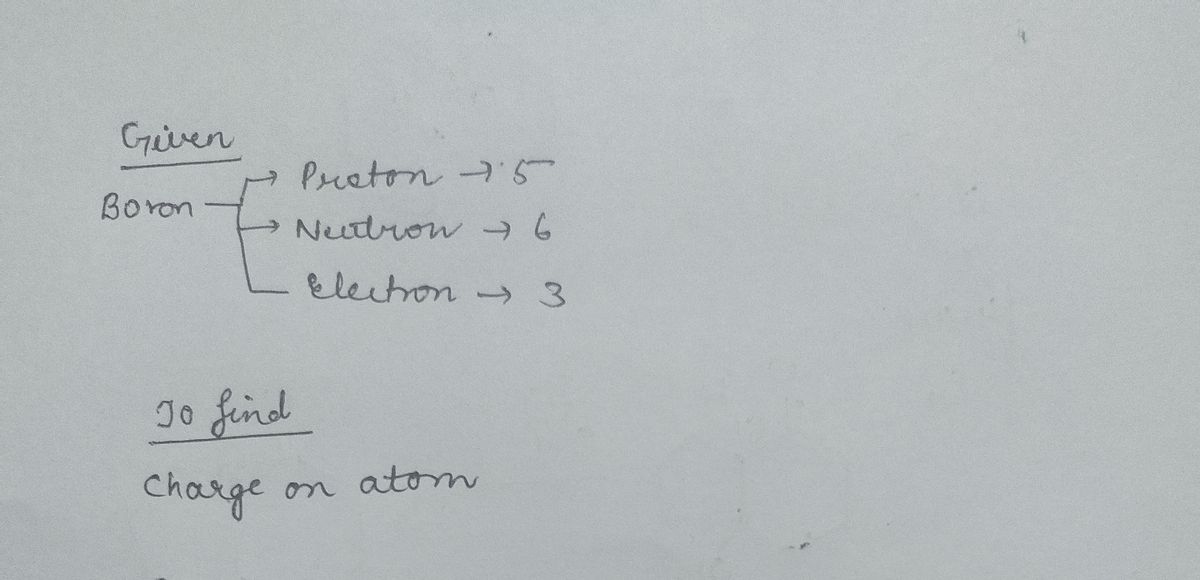 Given
Boron → Proton → 5
→ Neutron → 6
Electron → 3
To find
Charge on atom